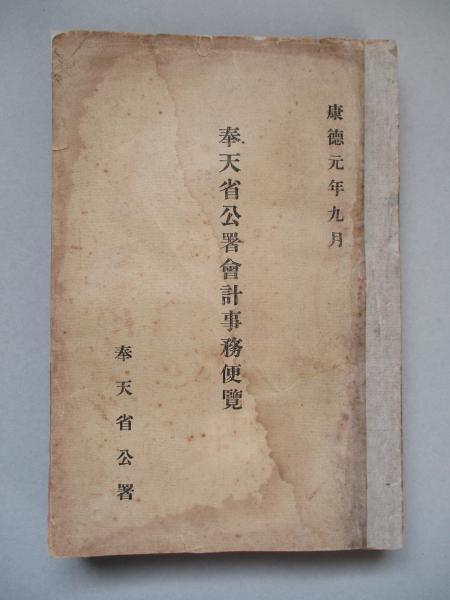 康德元年九月
奉天省公署會計事務便覽
奉天省公署